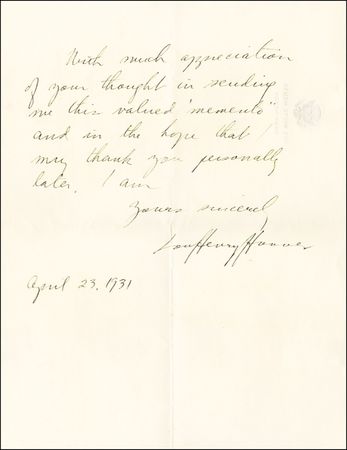 With much appreciation
of your thought in sending
me this valued "memento"
and in the hope that I
may thank you personally
later, I am
Yours sincerely
Lou Henry Hoover
April 23, 1931